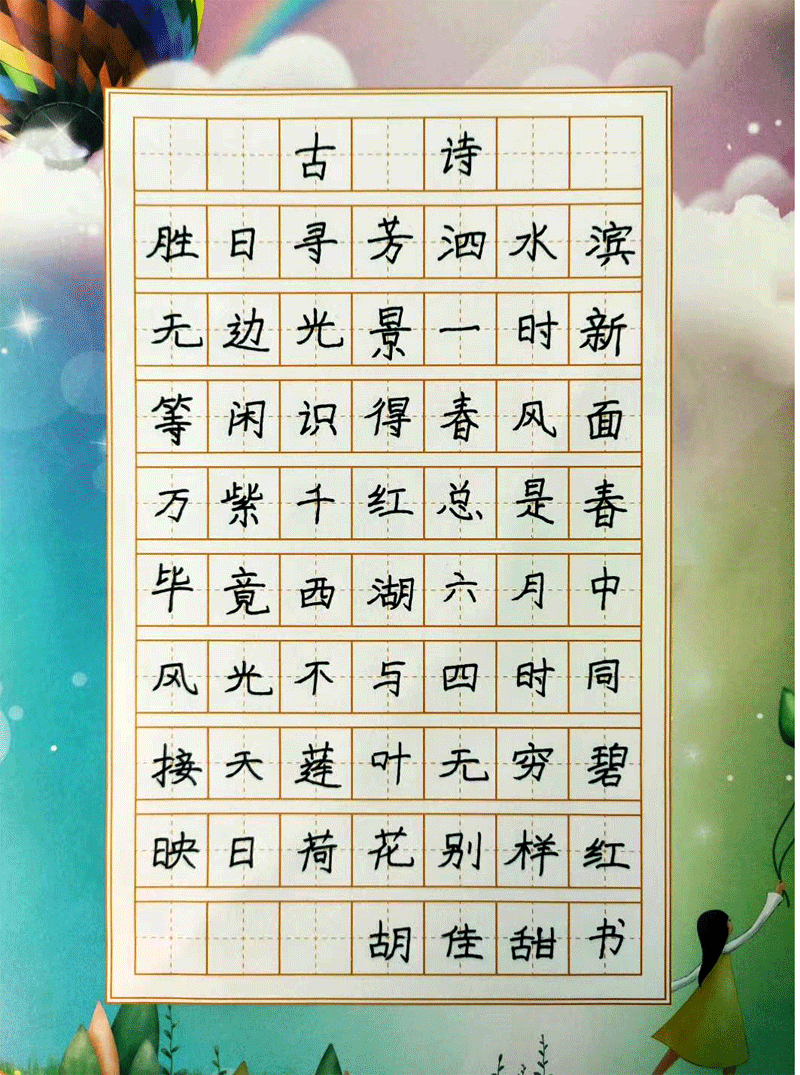 古诗
胜日寻芳泗水滨
无边光景一时新
等闲识得春风面
万紫千红总是春
毕竟西湖六月中
风光不与四时同
接天莲叶无穷碧
映日荷花别样红
胡佳甜书